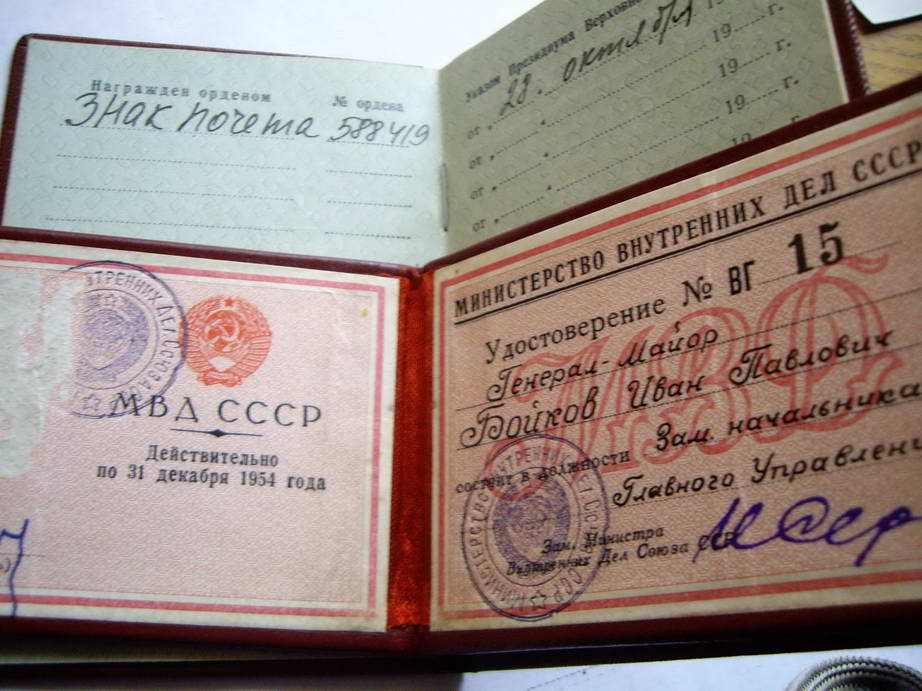 Награжден орденом № ордена
Знак почета 588419
Указом Президиума Верховно
от „28. октября 19
от „ “ 19 г.
от „ “ 19 г.
от „ “ 19 г.
от „ “ 19 г.
МВД СССР
Действительно
по 31 декабря 1954 года
МИНИСТЕРСТВО ВНУТРЕННИХ ДЕЛ СССР
Удостоверение № ВГ 15
Генерал-Майор
Бойков Иван Павлович
состоит в должности Зам. начальника
Главного Управлени
Зам. Министра
Внутренних Дел Союза ССР
МВД
МИНИСТЕРСТВО ВНУТРЕННИХ ДЕЛ СОЮЗА ССР